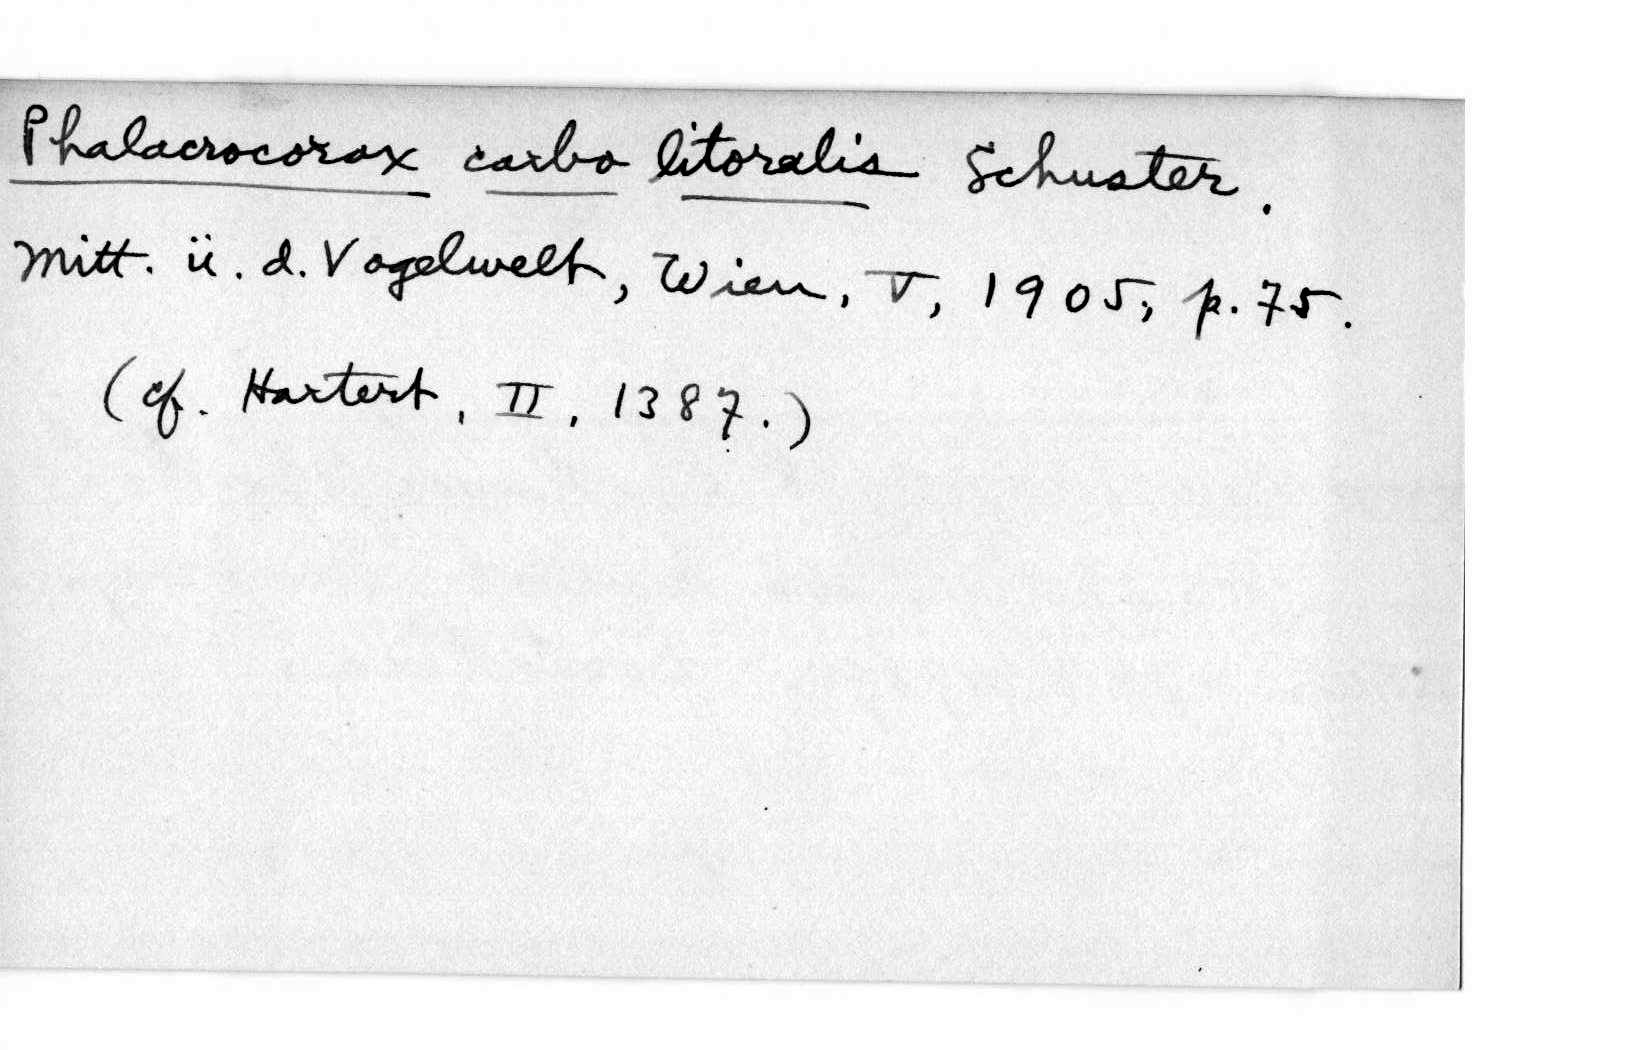 Phalacrocorax carbo litoralis Schuster.
Mitt. ü. d. Vogelwelt, Wien, V, 1905, p. 75.
(cf. Hartert, II, 1387.)